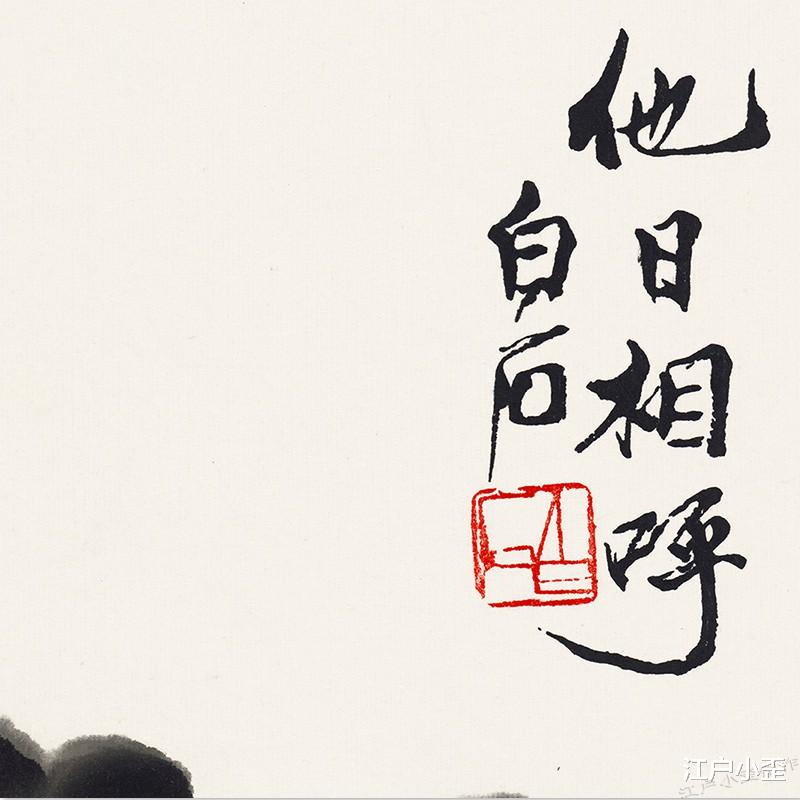 他日相呼
白石
江户小歪